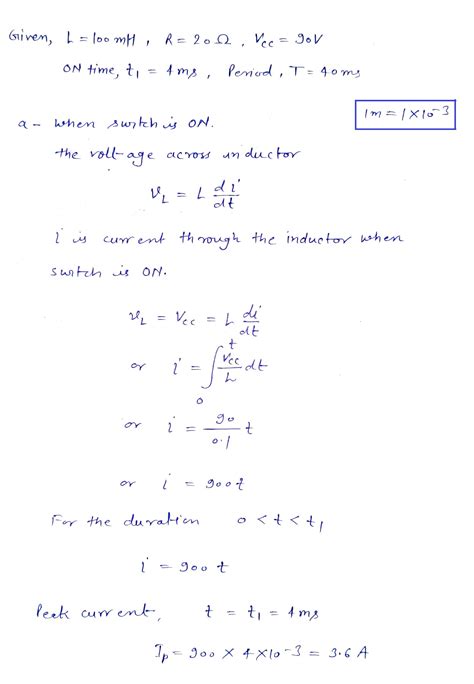 Given, L = 100 mH , R = 20 Ω , Vcc = 90V
ON time, t1 = 4 ms , Period , T = 40 ms
1m = 1×10-3
a - When switch is ON.
the voltage across inductor
vL = L di/dt
i is current through the inductor when
switch is ON.
vL = Vcc = L di/dt
or i = ∫0t Vcc/L dt
or i = 90/0.1 t
or i = 900t
For the duration 0 < t < t1
i = 900 t
Peak current, t = t1 = 4 ms
Ip = 900 × 4×10-3 = 3.6 A